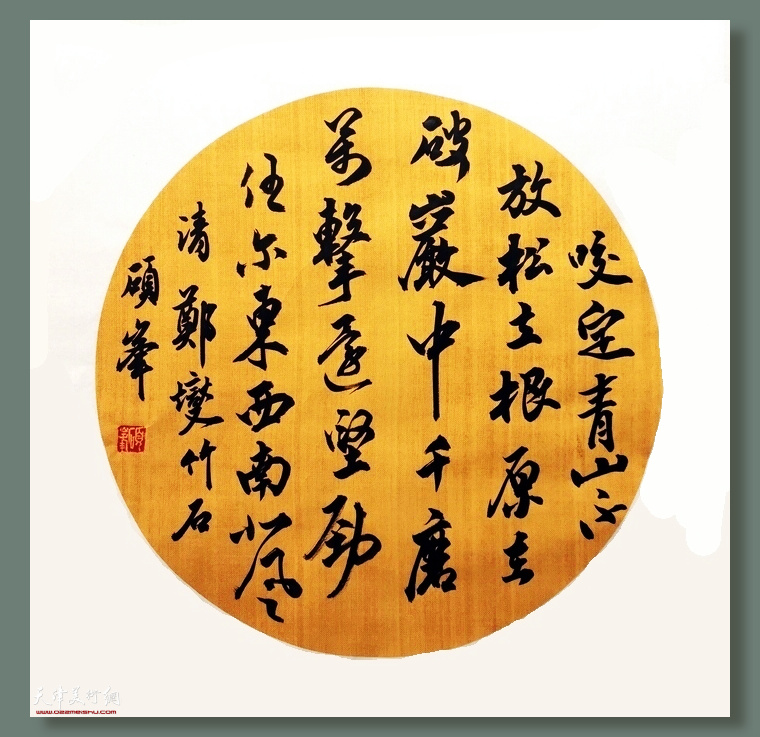 咬定青山不
放松立根原在
破巖中千磨
萬擊還堅勁
任尔東西南北風
清鄭燮竹石
碩峯
天津美術網
www.022meishu.com